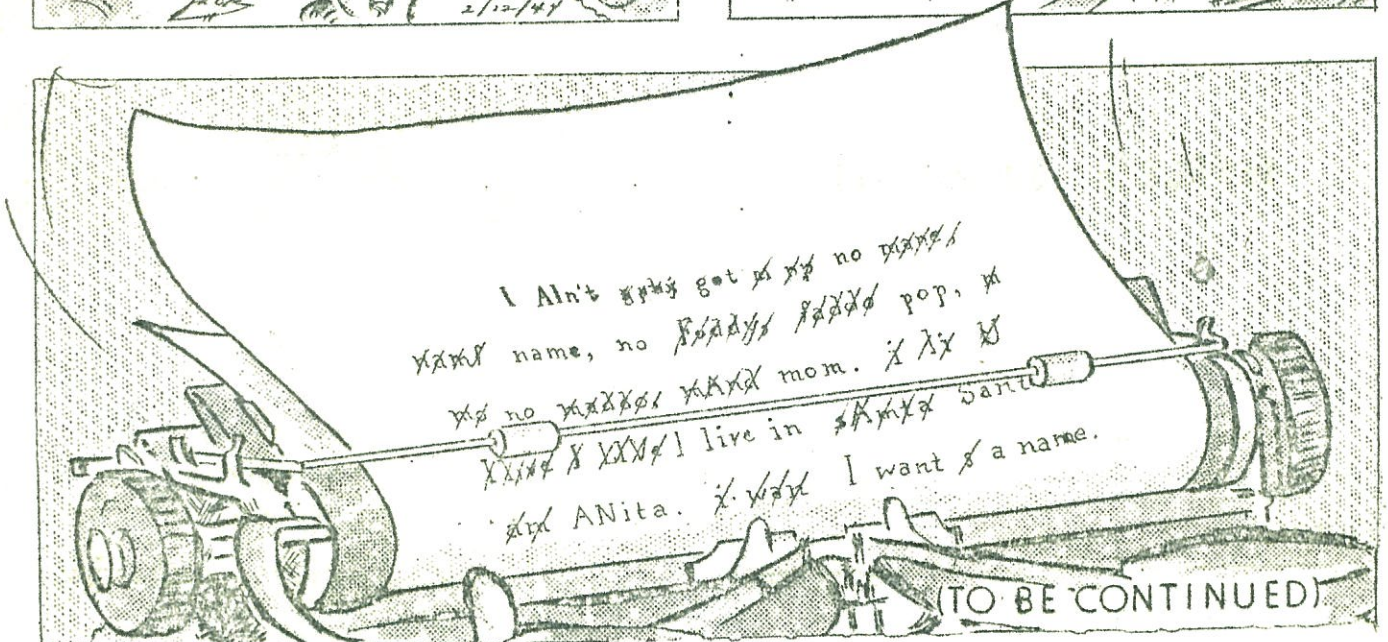 2/22/44
I AIn't got no
name, no pop,
no mom.
I live in Sant
ANita. I want a name.
(TO BE CONTINUED)